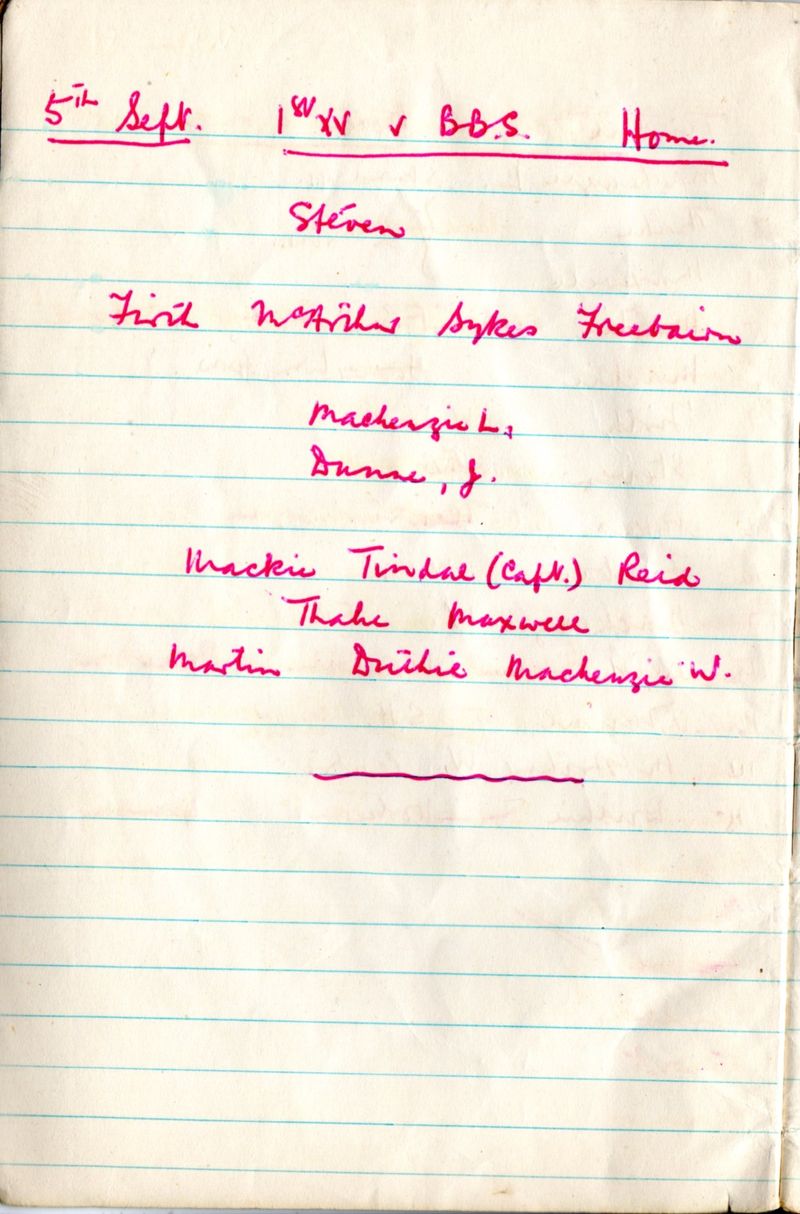 5th Sept. 1st XV v B.B.S. Home.
Steven
Firth McArthur Sykes Freebairn
Mackenzie L.
Dunne, J.
Mackie Tindal (Capt.) Reid
Thake Maxwell
Martin Duthie Mackenzie W.